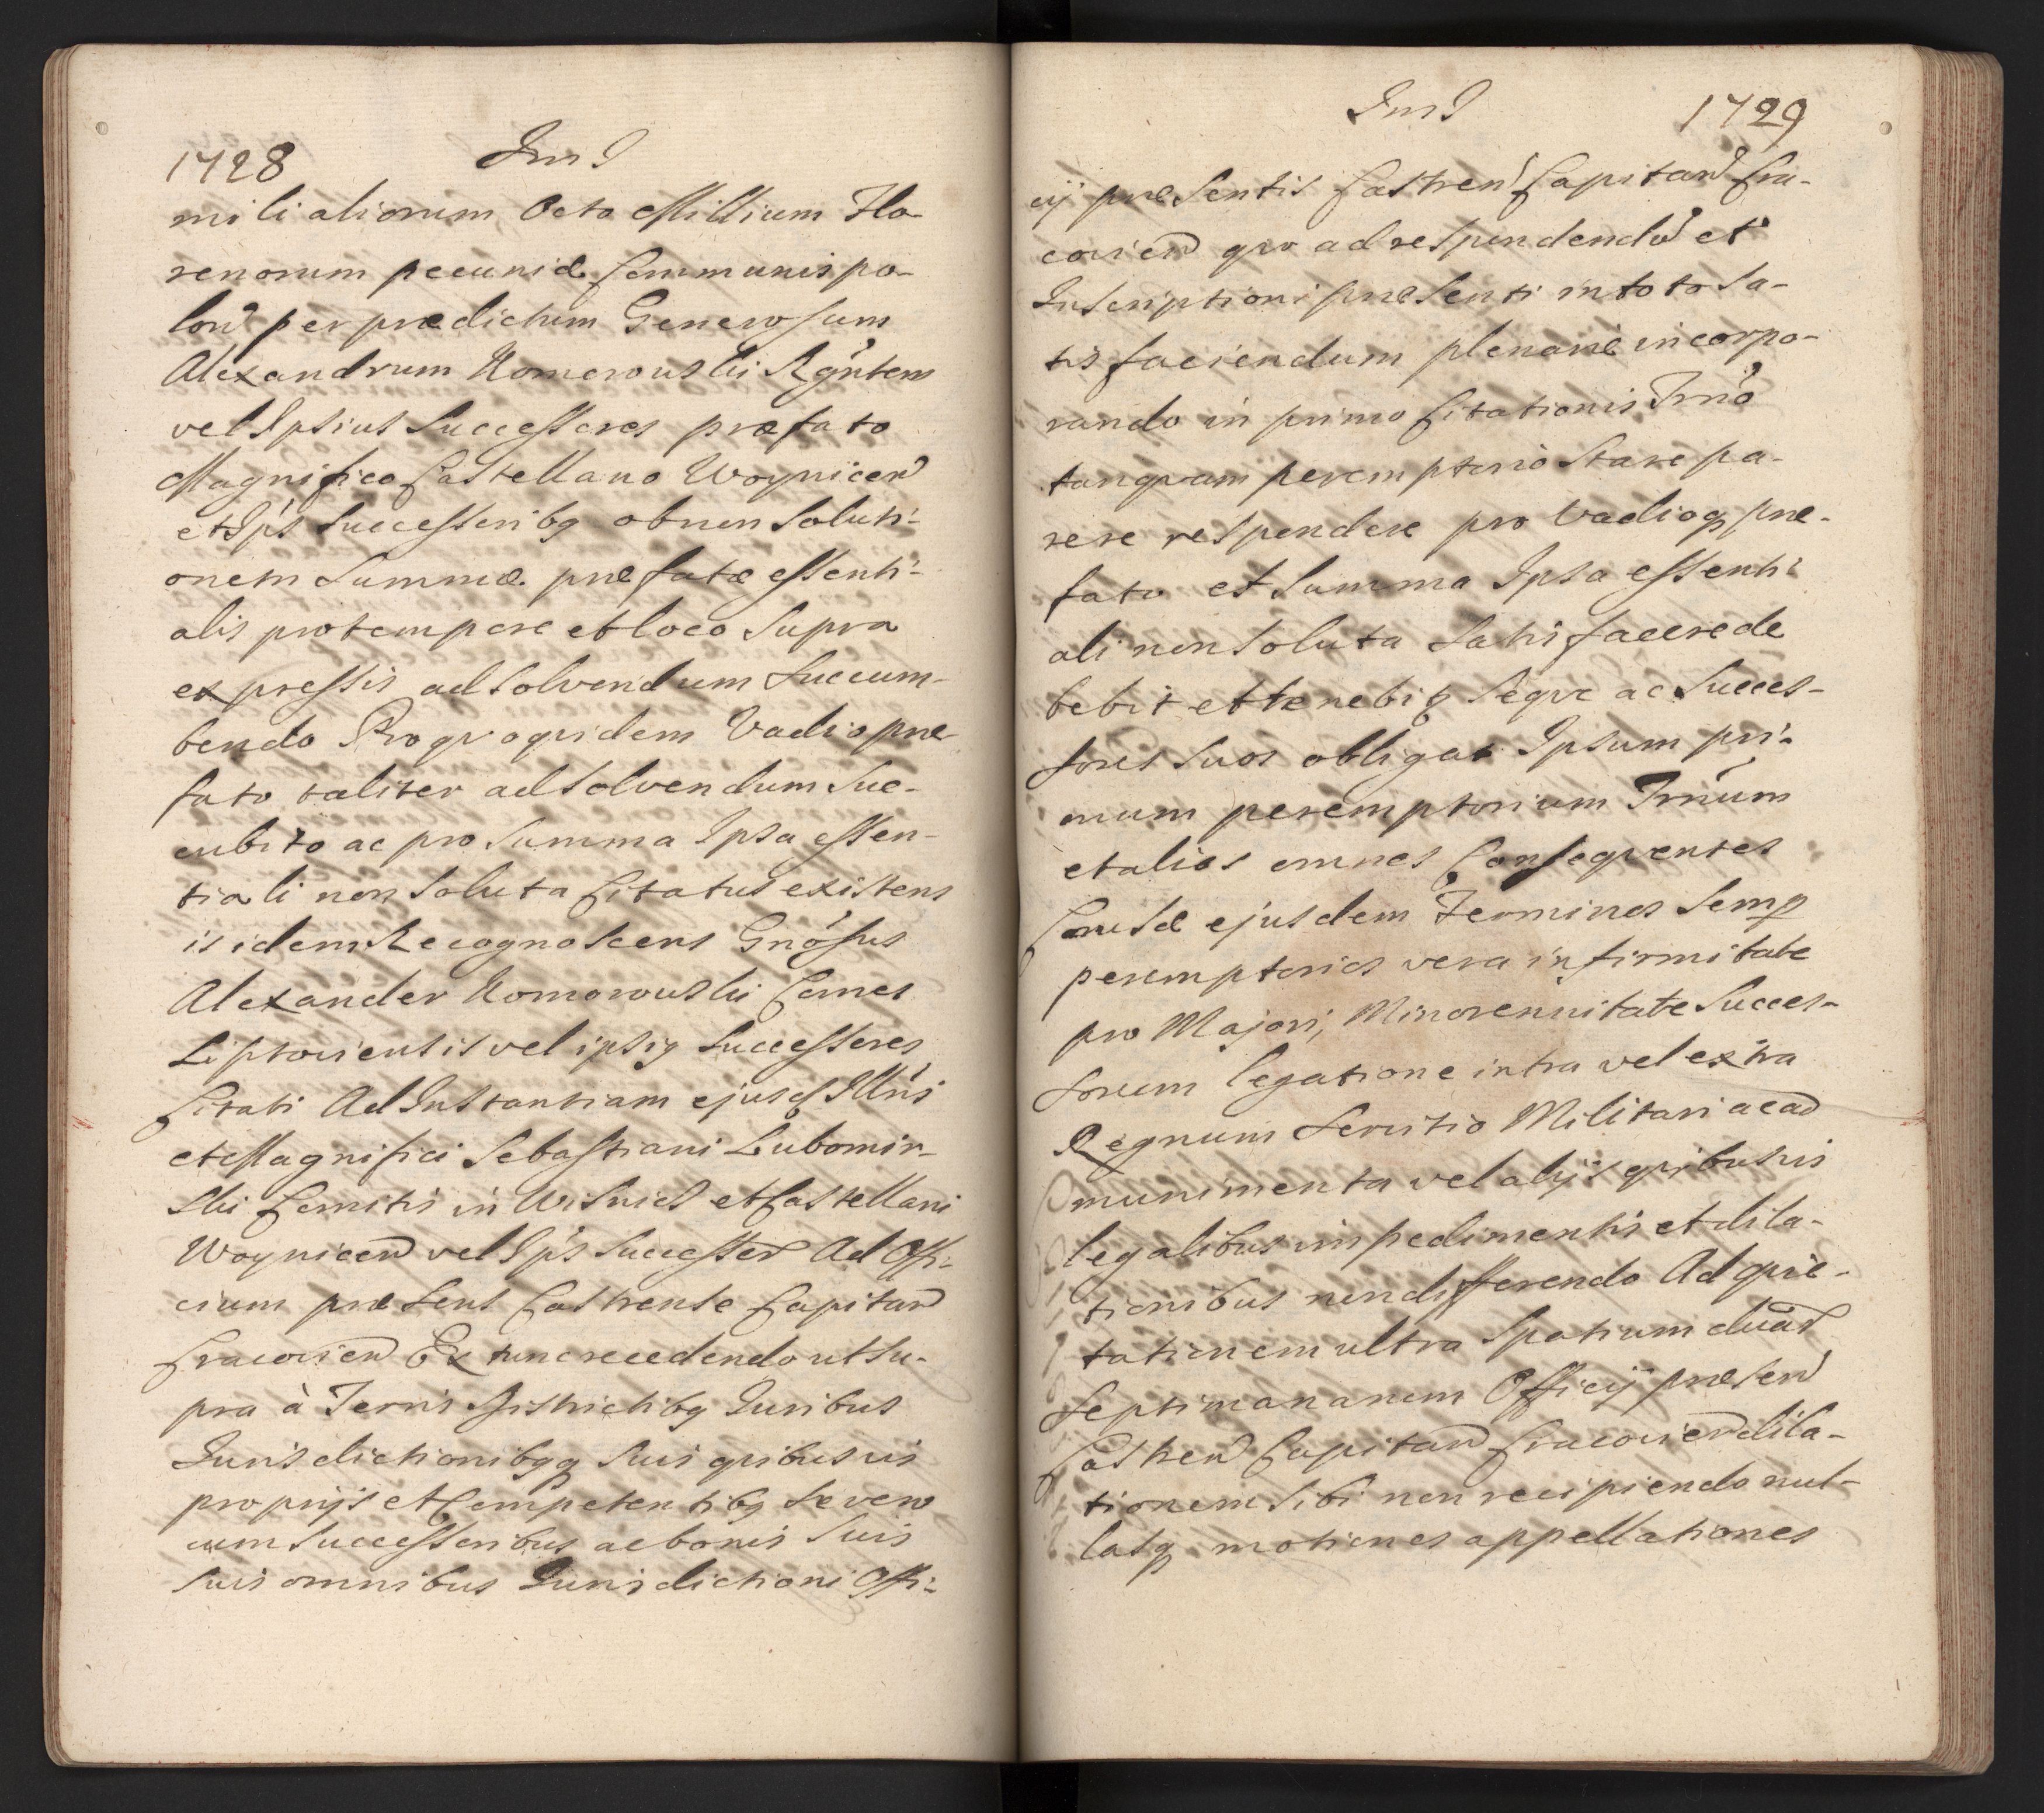 1728
mili aliorum, Octo Millium Flo-
renorum pecuniæ Communis po-
lon per prædictum Generosum
Alexandrum Komorowski Rgñtem
vel Ipsius Successores præfato
Magnifico Castellano Woynicen
et Ip's Successoribq ob non soluti-
onem Summæ præfatæ essenti-
alis pro tempore et loco Supra
expressis ad Solvendum Succum-
bendo Pro qvo qvidem Vadio præ-
fato taliter ad Solvendum Suc-
cubito ac pro Summa Ipsa essen-
tiali non Soluta Citatus existens
is idem Recognoscens Gnösus
Alexander Komorowski Comes
Liptoviensis vel ipsiq Successores
Citati Ad Instantiam ejusd Illris
et Magnifici Sebastiani Lubomir-
ski Comitis in Wisnicz et Castellani
Woynicen vel Ip's Successor Ad Offi-
cium præsens Castrense Capitan
Cracovien Ex tunc recedendo ut Su-
pra à Terris Districtibq Iuribus
Iurisdictionibqq Suis qvibusvis
proprijs et Competentibq Se vero
cum Successoribus ac bonis Suis
suis omnibus Iurisdictioni Offi-
1729
cij præsentis Castren Capitan Cra-
covien qvo ad respondendũ et
Inscriptioni præsenti in toto Sa-
tis faciendum plenarie incorpo-
rando in primo Citationis Trnö
tanqvam peremptorio Stare pa-
rere respondere pro Vadioq præ-
fato et Summa Ipsa essenti-
ali non Soluta Satisfacere de
bebit et tenebiq Seqve ac Succes-
sores Suos obligat Ipsum pri-
mum peremptorium Trnum
et alios omnes Conseqventes
Causæ ejusdem Terminos Semp
peremptorios vera infirmitate
pro Majori, Minorennitate Succes-
sorum legatione intra vel extra
Regnum Servitio Militari ac ad
munimenta vel alijs qvibusvis
legalibus impedimentis et dila-
tionibus non differendo Ad qvie-
tationem ultra Spatium duar
Septimanarum Officij præsen
Castren Capitan Cracovien dila-
tionem Sibi non recipiendo nul-
lasq motiones appellationes